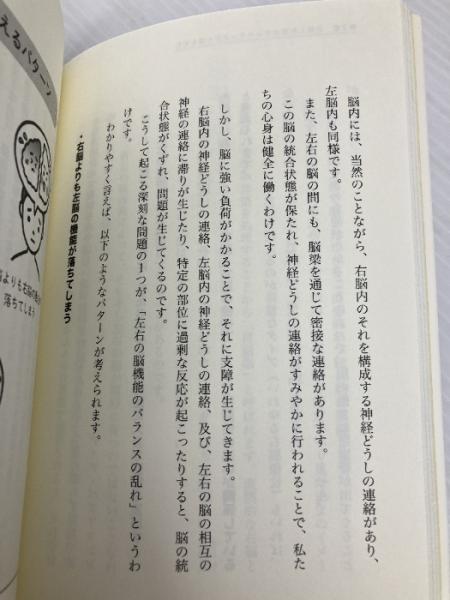 脳内には、当然のことながら、右脳内のそれを構成する神経どうしの連絡があり、
左脳内も同様です。
また、左右の脳の間にも、脳梁を通じて密接な連絡があります。
この脳の統合状態が保たれ、神経どうしの連絡がすみやかに行われることで、私た
ちの心身は健全に働くわけです。
しかし、脳に強い負荷がかかることで、それに支障が生じてきます。
右脳内の神経どうしの連絡、左脳内の神経どうしの連絡、及び、左右の脳の相互の
神経の連絡に滞りが生じたり、特定の部位に過剰な反応が起こったりすると、脳の統
合状態がくずれ、問題が生じてくるのです。
こうして起こる深刻な問題の1つが、「左右の脳機能のバランスの乱れ」というわ
けです。
わかりやすく言えば、以下のようなパターンが考えられます。
・右脳よりも左脳の機能が落ちてしまう
えるパターン
よりも右脳の機
落ちてしまう